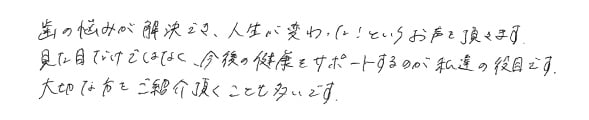 歯の悩みが解決でき、人生が変わった!というお声を頂きます.
見た目だけではなく、今後の健康をサポートするのが私達の役目です.
大切な方をご紹介頂くことも多いです.